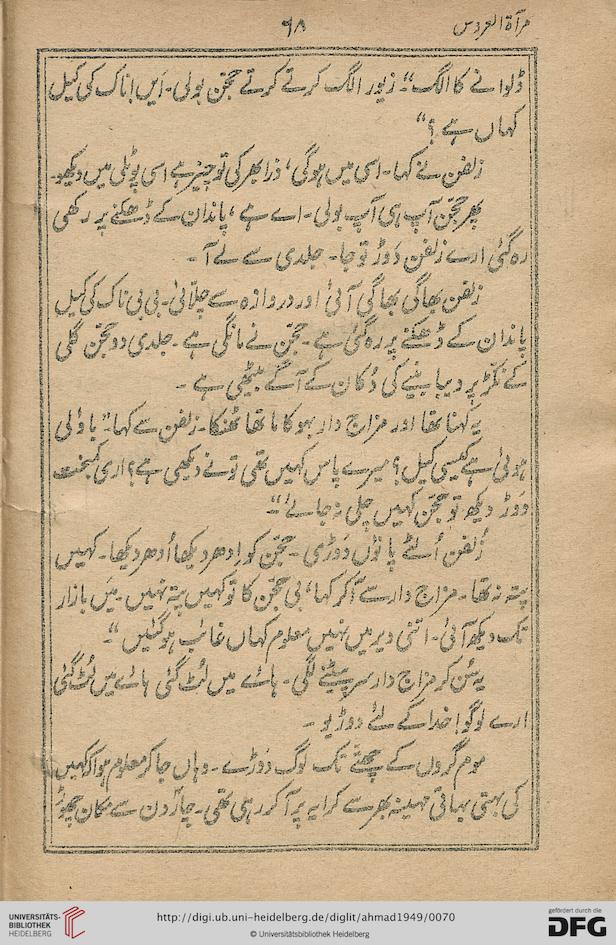 مرآۃ العروس
۶۸
ڈلوانے کا الگ"۔ زیور الگ کرتے کرتے حجّن بولی۔ اَیں! ناک کی کیل
کہاں ہے؟"
زلفن نے کہا۔ اسی میں ہوگی، ذرا بھر کی تو چیز ہے اسی پوٹلی میں دیکھو۔
پھر حجّن آپ ہی آپ بولی۔ اے ہے، پاندان کے ڈھکنے پر رکھی
رہ گئی ارے زلفن دَوڑ تو جا۔ جلدی سے لے آ۔
زلفن بھاگی بھاگی آئی اور دروازہ سے چلّائی۔ بی بی ناک کی کیل
پاندان کے ڈھکنے پر رہ گئی ہے۔ حجّن نے مانگی ہے۔ جلدی دو حجّن گلی
کے نکّڑ پر دیبا بنیے کی دُکان کے آگے بیٹھی ہے۔
یہ کہنا تھا اور مزاج دار بہو کا ماتھا ٹھنکا۔ زلفن سے کہا" باؤلی
ہوئی ہے کیسی کیل؟ میرے پاس کہیں تھی تو نے دیکھی ہے؟ اری کمبخت
دَوڑ دیکھ تو حجّن کہیں چلی نہ جائے"۔
زُلفن اُلٹے پانوٗں دَوڑی۔ حجّن کو اِدھر دیکھا اُدھر دیکھا۔ کہیں
پتہ نہ تھا۔ مزاج دار سے آکر کہا، بی حجّن کا تو کہیں پتہ نہیں۔ مَیں بازار
تک دیکھ آئی۔ اتنی دیر میں نہیں معلوم کہاں غائب ہوگئیں"۔
یہ سُن کر مزاج دار سر پیٹنے لگی۔ ہائے میں لُٹ گئی ہائے میں لُٹ گئی
ارے لوگو! خدا کے لئے دوڑیو۔
موم گروں کے چھتّے تک لوگ دَوڑے۔ وہاں جاکر معلوم ہوا کہ کہیں
کی بہتی بہاتی مہینہ بھر سے کرایہ پر آکر رہی تھی۔ چار دن سے مکان چھوڑ
UNIVERSITÄTS-
BIBLIOTHEK
HEIDELBERG
http://digi.ub.uni-heidelberg.de/diglit/ahmad1949/0070
© Universitätsbibliothek Heidelberg
gefördert durch die
DFG